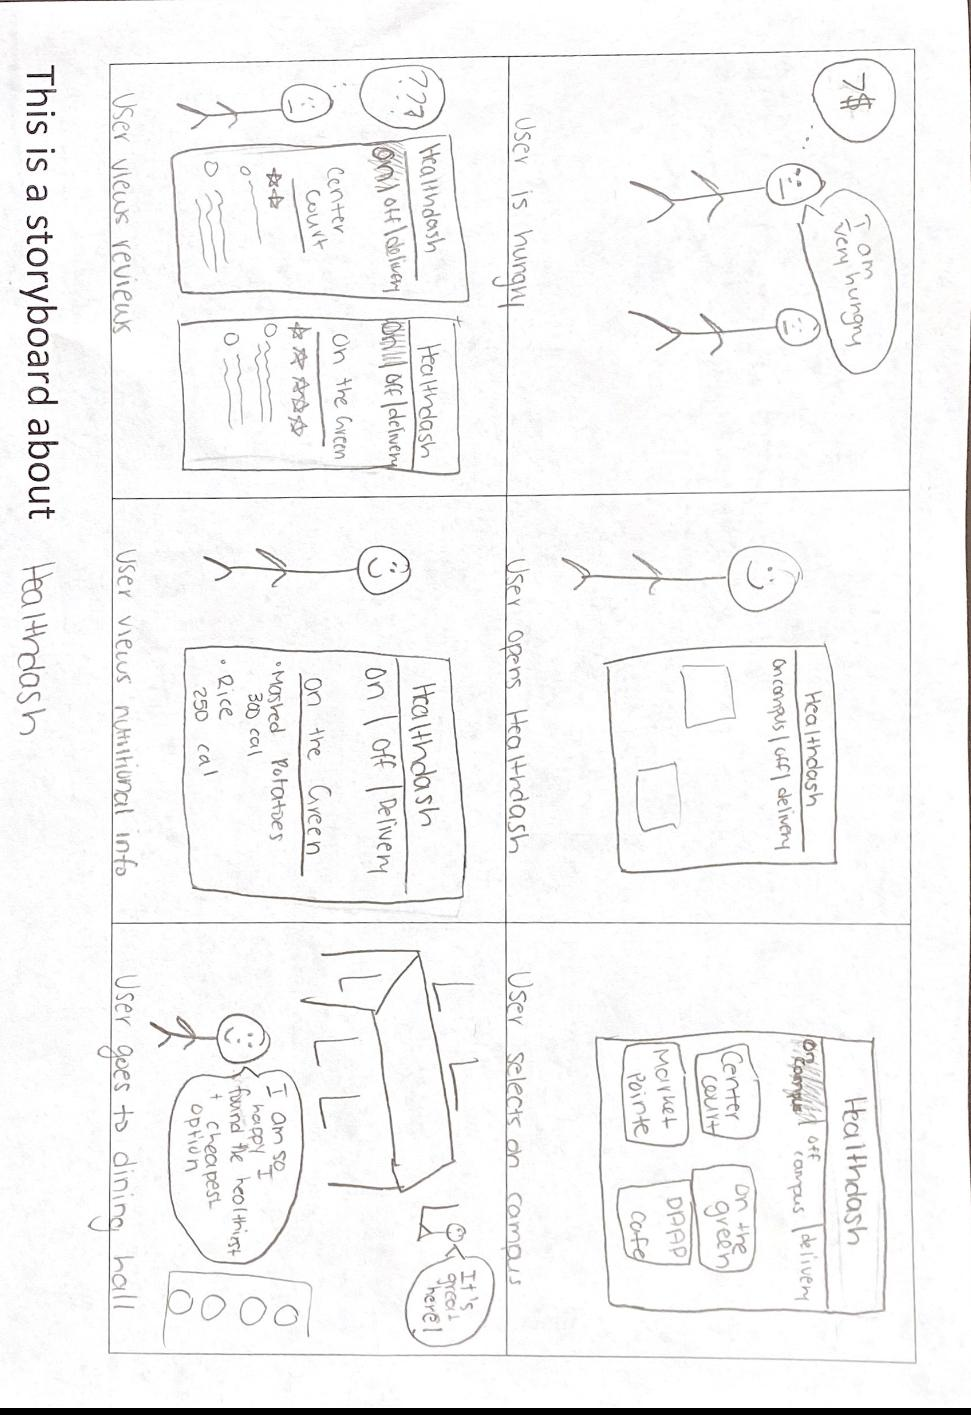 ?$
I am
very hungry
User is hungry
Healthdash
On campus / off / delivery
User opens Healthdash
Healthdash
On campus / off campus / delivery
Center
Court
On the
green
Market
Pointe
DAAP
Cafe
User selects on campus
???
Healthdash
On / off / delivery
Center
Court
Healthdash
On / off / delivery
On the Green
User views reviews
Healthdash
On / Off / Delivery
On the Green
• Mashed Potatoes
300 cal
• Rice
250 cal
User views nutritional info
It's
great
here!
I am so
happy I
found the healthiest
+ cheapest
option
User goes to dining hall
This is a storyboard about Healthdash